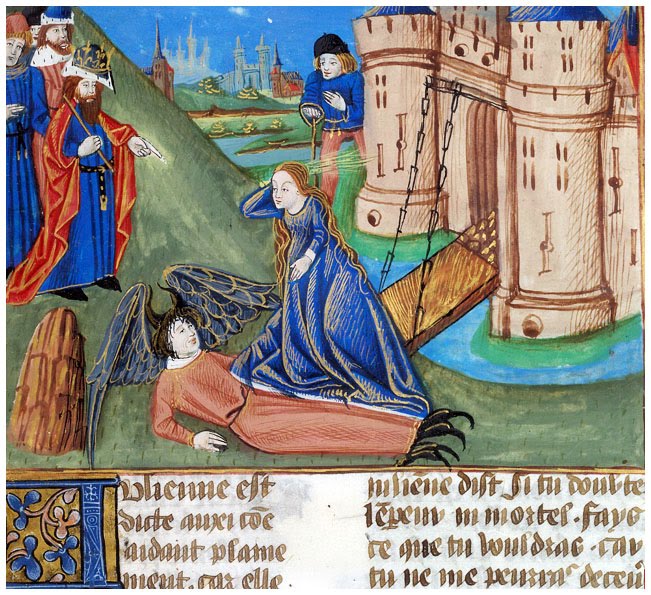 Iulienne est
dicte auxi cõe
aidant plame
ment. car elle
iuliẽne dist Si tu doubte
lẽpeur inmortel. fays
ce que tu vouldras. car
tu ne me peurras deceu